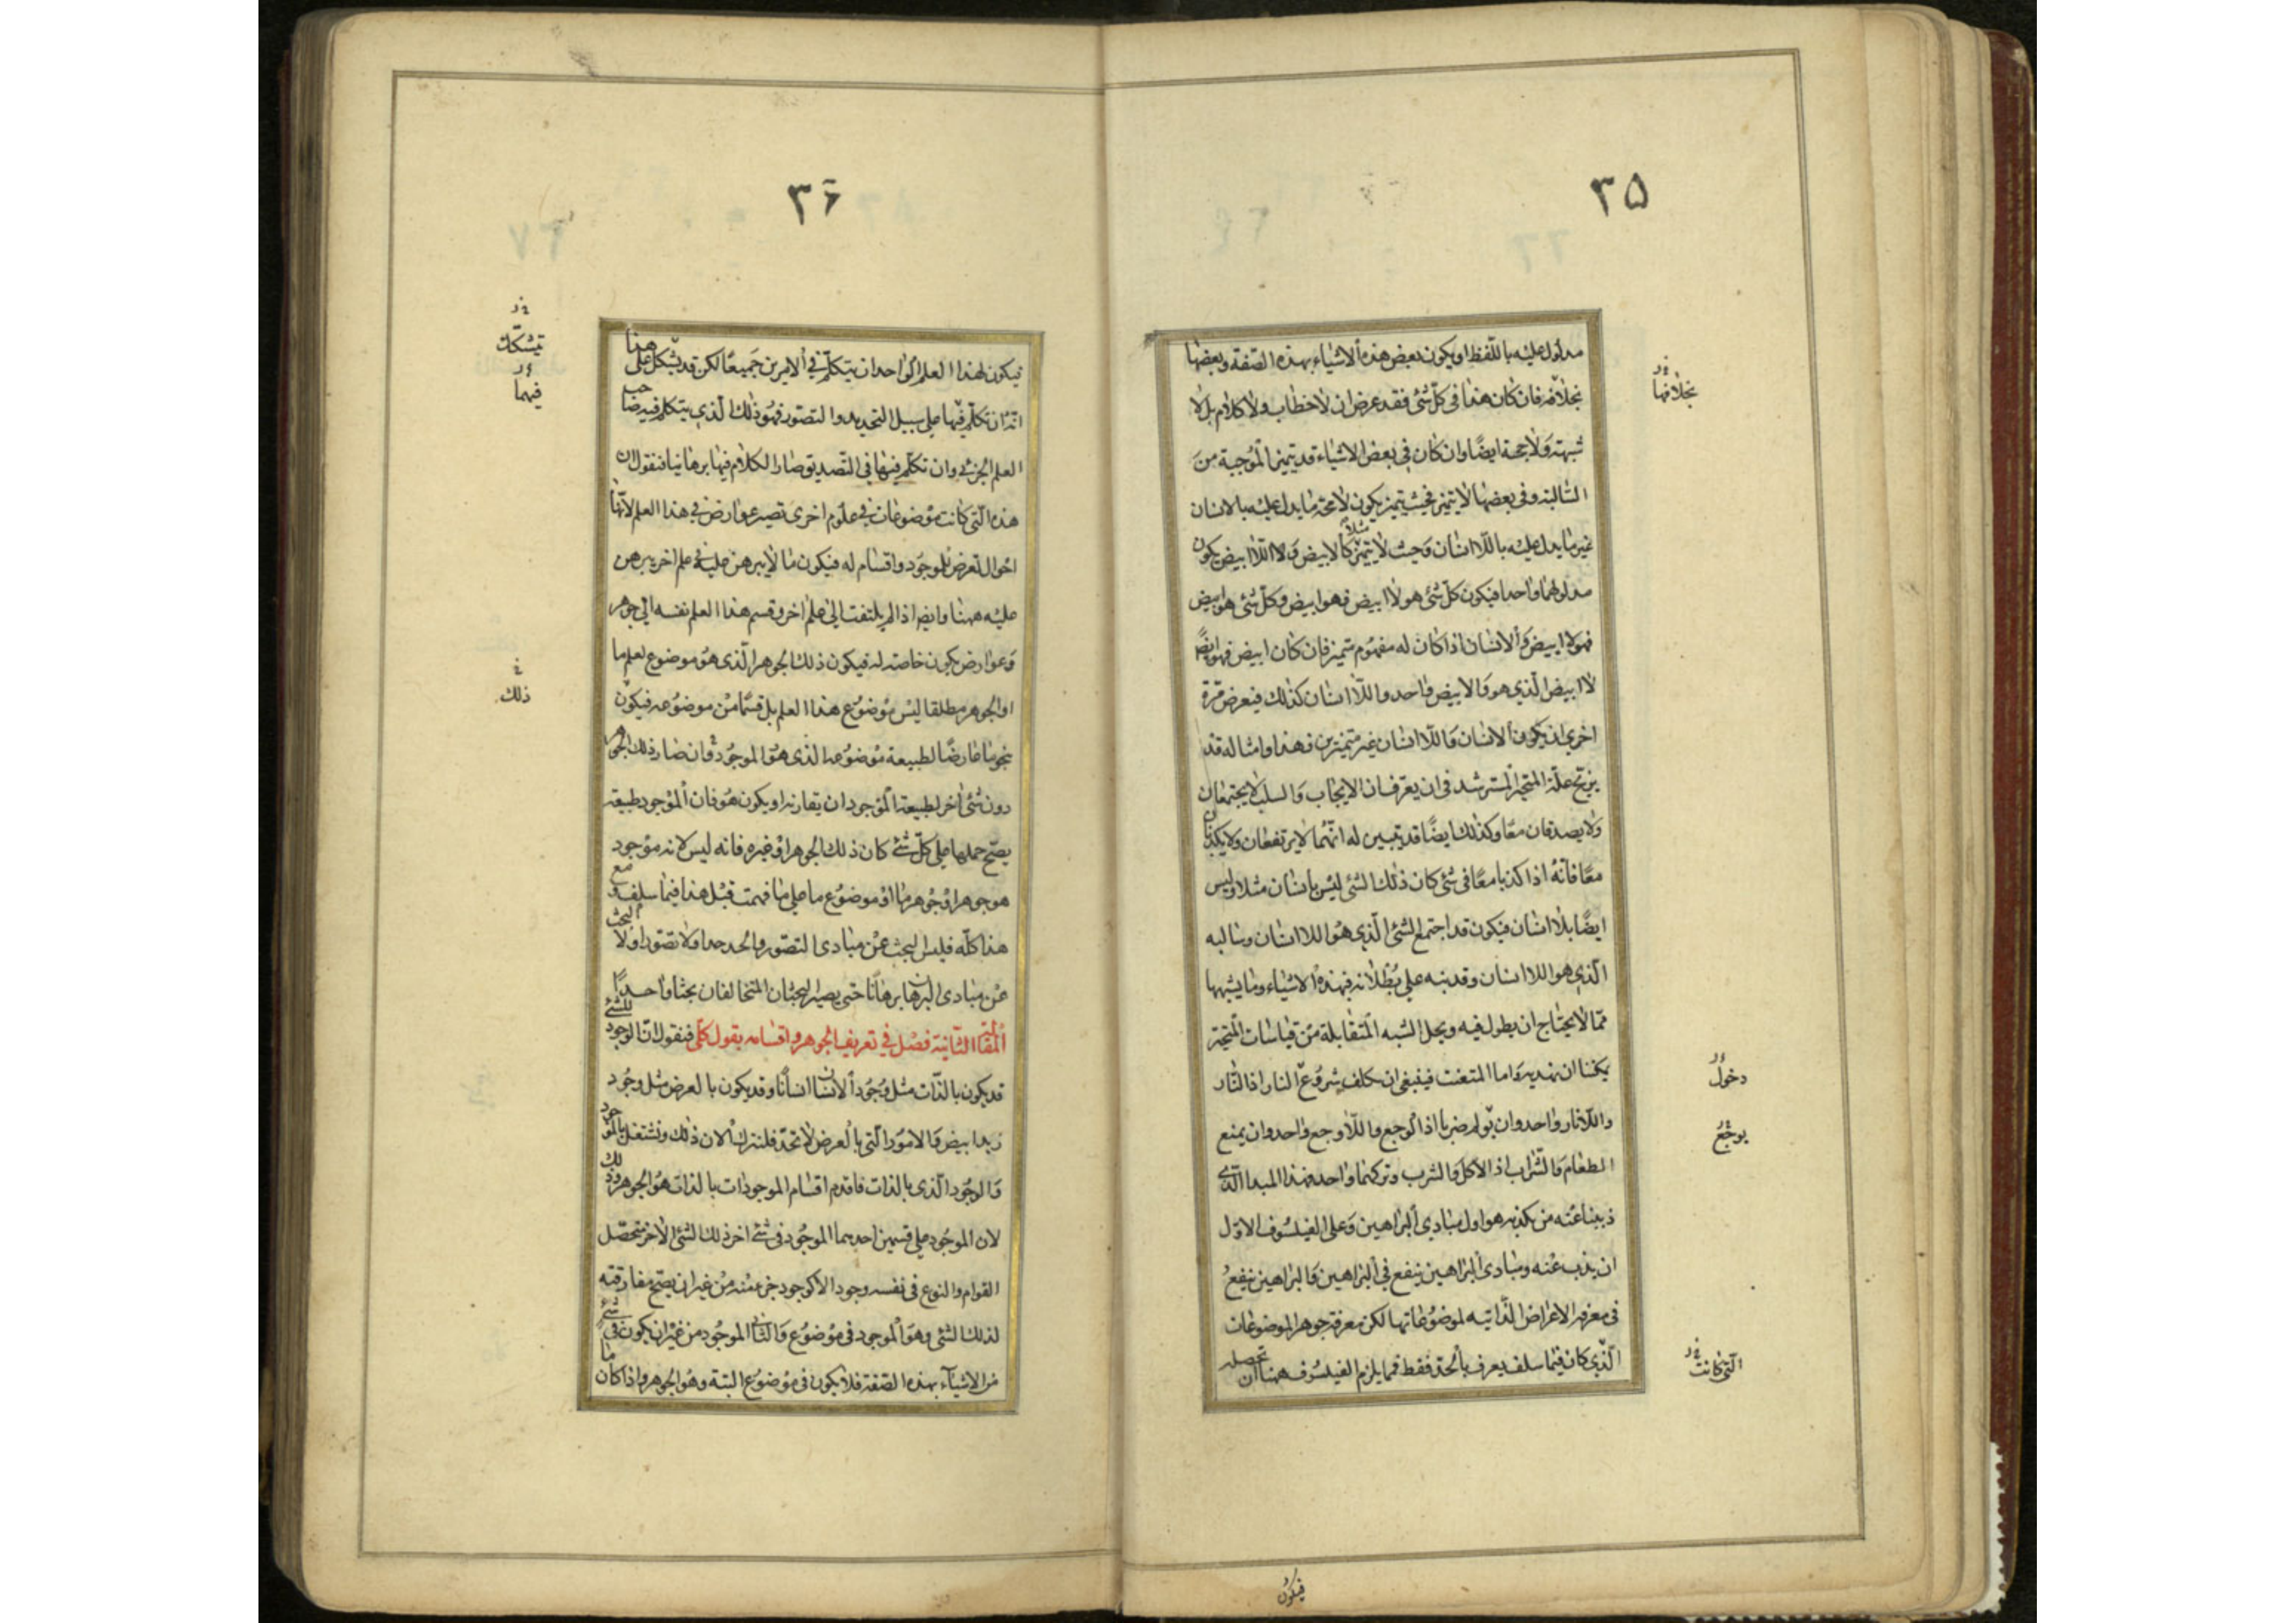 ۳۵
مدلول عليه باللّفظ او يكون بعض هذه الاشياء بهذه الصّفة وبعضها
بخلافه فان كان هذا فى كلّ شئ فقد عرض ان لا خطاب ولا كلام بل لا
شبهة ولا حجة ايضًا وان كان فى بعض الاشياء قد يتميز الموجبة من
السالبة وفى بعضها لا يتميز فحيث يتميز يكون لا محة ما يدل عليه بالانسان
غير ما يدل عليه باللّاانسان وحيث لا يتميّز مثلاً كالابيض ولا اللّاابيض يكون
مدلولهما واحدا فيكون كلّ شئ هو لاابيض فهو ابيض وكلّ شئ هو ابيض
فهو لا ابيض والانسان اذا كان له مفهوم متميز فان كان ابيض فهو ايضًا
لاابيض الّذى هو والابيض واحد واللّاانسان كذلك فيعرض مرّة
اخرى ان يكون الانسان واللّاانسان غير متميّزين فهذا وامثاله قد
يزيح علّة المتحيّر المسترشد فى ان يعرف ان الايجاب والسلب لا يجتمعان
ولا يصدقان معًا وكذلك ايضًا قد تبيين له انّهما لا يرتفعان ولا يكذبان
معًا فانّه اذا كذبا معًا فى شئ كان ذلك الشئ ليس بانسان مثلا وليس
ايضًا بلاانسان فيكون قد اجتمع الشئ الّذى هو اللاانسان وسالبه
الّذى هو اللاانسان وقد نبه على بطلانه فهذه الاشياء وما يشبهها
ممّا لا يحتاج ان يطول فيه وبحل الشبه المتقابلة من قياسات المتحيّر
يمكننا ان نهديه واما المتعنت فينبغى ان يكلف شروع النار اذ النّار
واللّانار واحد وان يؤلم ضربا اذ الوجع واللّاوجع واحد وان يمنع
الطعام والشّراب اذ الاكل والشرب وتركهما واحد فهذا المبدا الّذى
ذببنا عنه من يكذبه هو اول مبادى البراهين وعلى الفيلسوف الاوّل
ان يذب عنه ومبادى البراهين ينفع فى البراهين والبراهين ينفع
فى معرفة الاعراض الذّاتيه لموضوعاتها لكن معرفة جوهر الموضوعات
الّذى كان فيما سلف يعرف بالحدّ فقط فمما يلزم الفيلسوف ههنا ان تحصله
بخلافها
دخول
يوجع
الّتى كانت
فيكون
۳۶
فيكون لهذا العلم الواحد ان يتكلّم فى الامرين جميعًا لكن قد يشكل على هذا
انّه ان تكلّم فيها على سبيل التحديد والتصوّر فهو ذلك الّذى يتكلم فيه صاحب
العلم الجزئى وان تكلّم فيها فى التّصديق صار الكلام فيها برهانيا فنقول ان
هذه الّتى كانت موضوعات فى علوم اخرى تصير عوارض فى هذا العلم لانّها
احوال تعرض للموجود واقسام له فيكون ما لا يبرهن عليه فى علم اخر يبرهن
عليه ههنا وايضا اذا لم يلتفت الى علم اخر وقسم هذا العلم نفسه الى جوهر
وعوارض يكون خاصة له فيكون ذلك الجوهر الّذى هو موضوع لعلم ما
او الجوهر مطلقا ليس موضوع هذا العلم بل قسمًا من موضوعه فيكون
بنحو ما عارضًا لطبيعة موضوعه الذى هو الموجود وان صار ذلك الجوهر
دون شئ اخر لطبيعة الموجود ان يقارنه او يكون هو فان الموجود طبيعة
يصحّ حملها على كلّ شئ كان ذلك الجوهر او غيره فانه ليس لانه موجود
هو جوهر او جوهر ما او موضوع ما على ما فهمت قبل هذا فيما سلف ومع
هذا كلّه فليس البحث عن مبادى التصوّر والحد حدا ولا تصوّرا ولا البحث
عن مبادى البرهان برهانًا حتى يصير البحثان المتخالفان بحثا واحدًا
المقالة الثّانية فصل فى تعريف الجوهر واقسامه بقول كلّى فنقول انّ الوجود للشئ
قد يكون بالذّات مثل وجود الانسان انسانًا وقد يكون بالعرض مثل وجود
زيد ابيض والامور الّتى بالعرض لا تحدّ فلنترك الان ذلك ونشتغل بالموجود
والوجود الّذى بالذات فاقدم اقسام الموجودات بالذات هو الجوهر وذلك
لان الموجود على قسمين احدهما الموجود فى شئ اخر ذلك الشئ الاخر متحصّل
القوام والنوع فى نفسه وجود الا كوجود جزء منه من غير ان يصحّ مفارقته
لذلك الشئ وهو الموجود فى موضوع والثّانى الموجود من غير ان يكون فى شئ
من الاشيآء بهذه الصّفة فلا يكون فى موضوع البتة وهو الجوهر واذا كان ما
تيشكّك
فيهما
ذلك